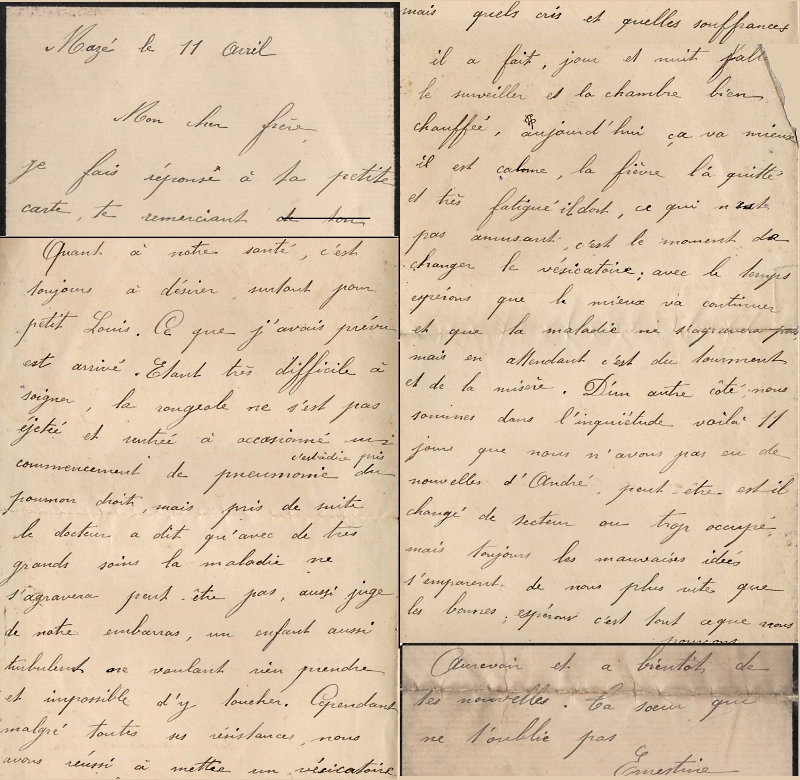 Mazé le 11 Avril
Mon cher frère,
je fais réponse à ta petite
carte, te remerciant de ton
Quant à notre santé, c'est
toujours à désirer, surtout pour
petit Louis. Ce que j'avais prévu
est arrivé. Etant très difficile à
soigner, la rougeole ne s'est pas
éjetéé et rentréé à occasionné un
c'estàdire pris
commencement de pneumonie du
poumon droit, mais pris de suite
le docteur a dit qu'avec de très
grands soins la maladie ne
s'agravera peut-être pas, aussi juge
de notre embarras, un enfant aussi
turbulent ne voulant rien prendre
et impossible d'y toucher. Cependant
malgré toutes ses résistances, nous
avons réussi à mettre un vésicatoire
mais quels cris et quelles souffrances
il a fait, jour et nuit fall
le surveiller et la chambre bien
chaufféé, aujourd'hui ça va mieux
il est calme, la fièvre l'à quitté
et très fatigué il dort, ce qui n'est
pas amusant, c'est le moment de
changer le vésicatoire; avec le temps
espérons que le mieux va continuer
et que la maladie ne s'agravera pas,
mais en attendant c'est du tourment
et de la misère. D'un autre côté, nous
sommes dans l'inquiétude voilà 11
jours que nous n'avons pas eu de
nouvelles d'André, peut-être est-il
changé de secteur ou trop occupé,
mais toujours les mauvaises idées
s'emparent de nous plus vite que
les bonnes; espérons c'est tout ceque nous
pouvons
Aurevoir et a bientôt de
tes nouvelles. Ta sœur qui
ne t'oublie pas
Ernestine